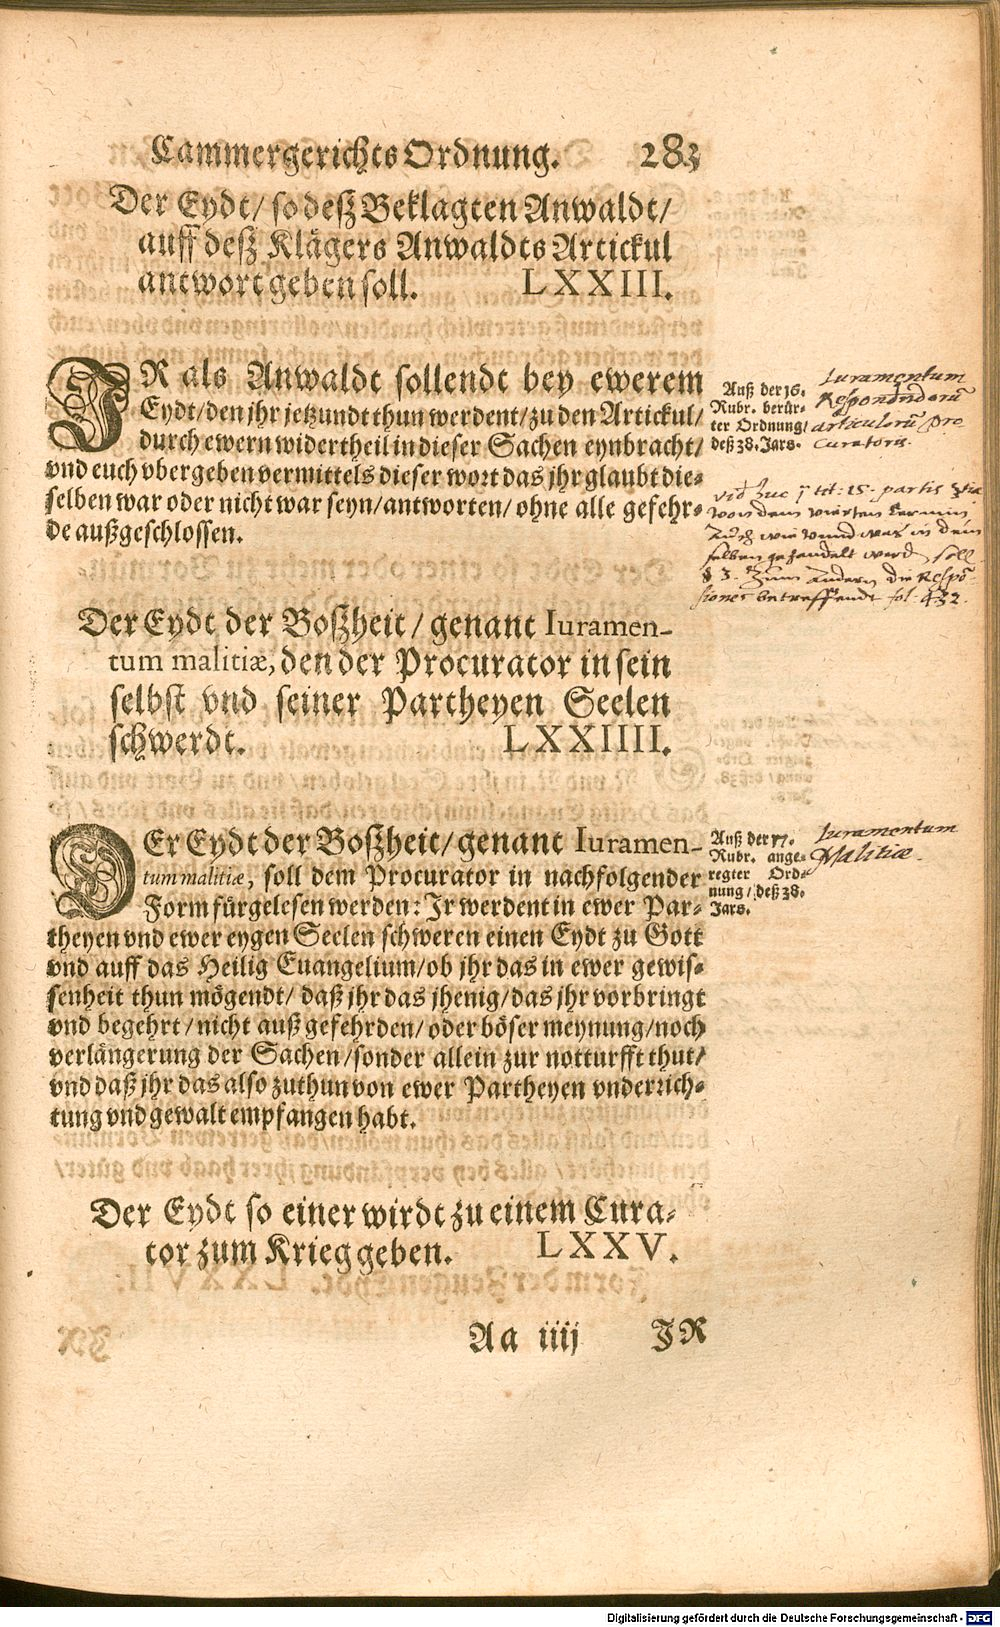 Cammergerichts Ordnung. 283
Der Eydt/ so deß Beklagten Anwaldt/
auff deß Klägers Anwaldts Artickul
antwort geben soll. LXXIII.
IR als Anwaldt sollendt bey ewerem
Eydt/den jhr jetzundt thun werdent/zu den Artickul/
durch ewern widertheil in dieser Sachen eynbracht/
vnd euch vbergeben vermittels dieser wort das jhr glaubt die-
selben war oder nicht war seyn/antworten/ohne alle gefehr-
de außgeschlossen.
Auß der 76.
Rubr. berür-
ter Ordnung/
deß 38. Jars.
Iuramentum
Respondendorũ
articulorũ Pro
curatoris.
vid huc tit: 15. partis 3tia
von dem vierten termin
auch wie vnnd was in dem
selben gehandelt werd soll
§ 3. Zum Andern die Respõ
siones betreffendt fol. 432.
Der Eydt der Boßheit/genant Iuramen-
tum malitiæ, den der Procurator in sein
selbst vnd seiner Partheyen Seelen
schwerdt. LXXIIII.
DEr Eydt der Boßheit/genant Iuramen-
tum malitiæ, soll dem Procurator in nachfolgender
Form fürgelesen werden: Jr werdent in ewer Par-
theyen vnd ewer eygen Seelen schweren einen Eydt zu Gott
vnd auff das Heilig Euangelium/ob jhr das in ewer gewis-
senheit thun mögendt/ daß jhr das jhenig/das jhr vorbringt
vnd begehrt/nicht auß gefehrden/oder böser meynung/noch
verlängerung der Sachen/sonder allein zur notturfft thut/
vnd daß jhr das also zuthun von ewer Partheyen vnderrich-
tung vnd gewalt empfangen habt.
Auß der 77.
Rubr. ange-
regter Ord-
nung/ deß 38.
Jars.
Iuramentum
Malitiæ.
Der Eydt so einer wirdt zu einem Cura-
tor zum Krieg geben. LXXV.
Aa iiij JR
Digitalisierung gefördert durch die Deutsche Forschungsgemeinschaft - DFG